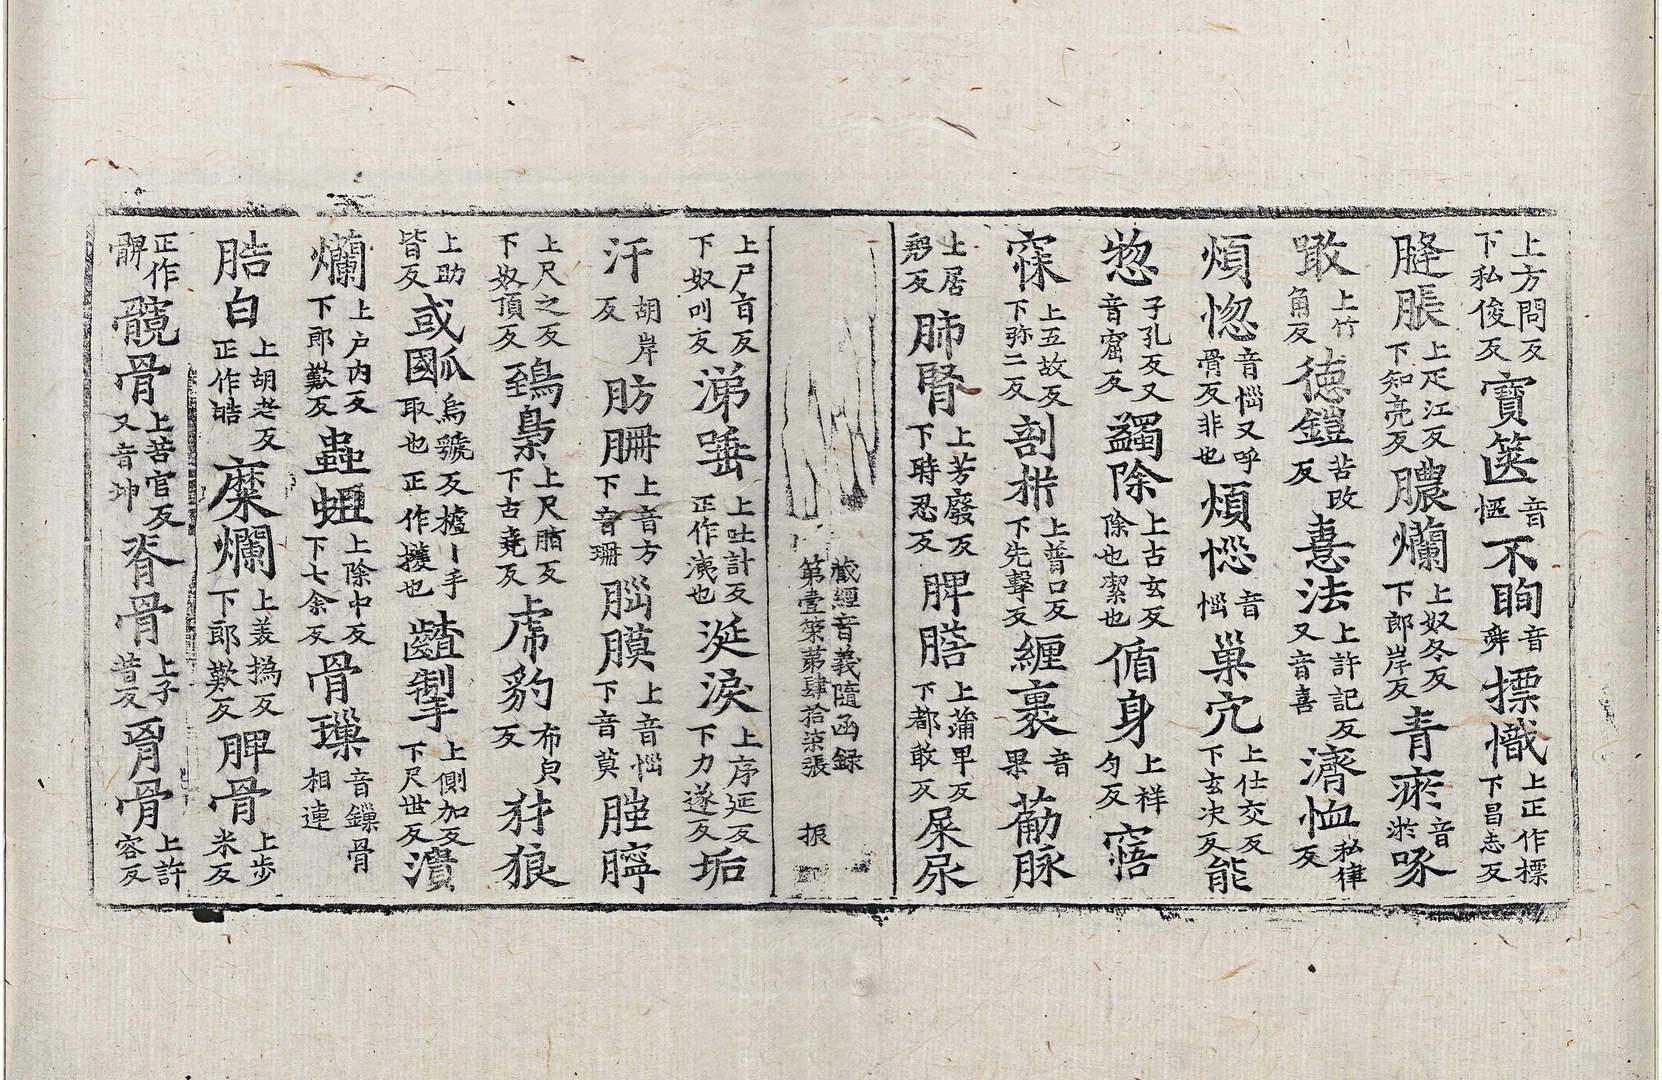 上方問反下私俊反寶篋音㥦不眴音舜摽幟上正作標下昌志反
膖脹上疋江反下知亮反膿爛上奴冬反下郎岸反青瘀音淤啄
噉上竹角反德鎧苦改反憙法上許記反又音喜濟恤私律反
煩惚音惱又呼骨反非也煩惱音惱巢穴上仕交反下玄决反能
惣子孔反又音窟反蠲除上古玄反除也潔也循身上祥匀反寤
寐上五故反下弥二反剖柝上普口反下先擊反纏裹音果萮脉
上居㔟反肺腎上芳廢反下時忍反脾膽上蒲卑反下都敢反屎尿
藏經音義隨函錄第壹第肆拾柒張 振
上尸旨反下奴叫反涕唾上吐計反正作洟也涎淚上序延反下力遂反垢
汗胡岸反肪𦙱上音方下音珊腦膜上音惱下音莫膖聹
上尺之反下奴頂反鵄梟上尺脂反下古堯反虎豹布皃反犲狼
上助皆反或國瓜烏虢反攎丨手取也正作擭也齇掣上側加反下尺世反潰
爛上户内反下郎歎反蟲蛆上除中反下七余反骨璅音鏁骨相連
䏆白上胡老反正作皓糜爛上美爲反下郎歎反脾骨上步米反
正作髀髖骨上苦官反又音坤脊骨上子昔反胷骨上許容反